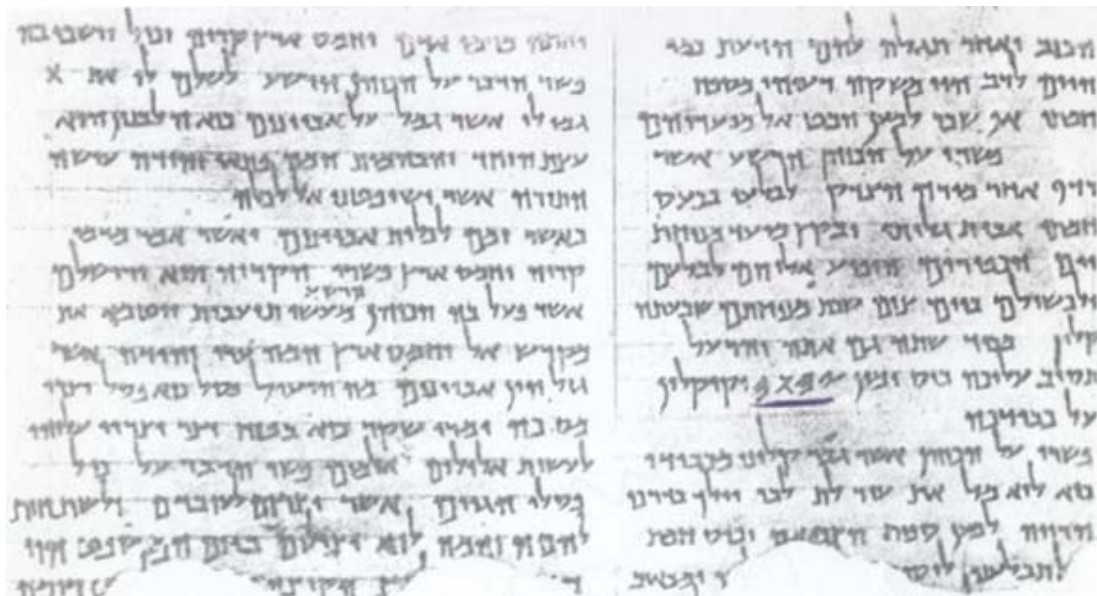 הכזב ואחר תגלה להם הדעת כמי
הים לרב הוי משקה רעיהו מספח
חמתו אף שכר למען הבט אל מועדיהם
פשרו על הכוהן הרשע אשר
רדף אחר מורה הצדק לבלעו בכעס
חמתו אבית גלותו ובקץ מועד מנוחת
יום הכפורים הופיע אליהם לבלעם
ולכשילם ביום צום שבת מנוחתם שבעתה
קלון מכבוד שתה גם אתה והרעל
תסוב עליכה כוס ימין 𐤉𐤄𐤅𐤄 וקיקלון
על כבודכה
פשרו על הכוהן אשר גבר קלונו מכבודו
כיא לוא מל את עורלת לבו וילך בדרכי
הרויה למען ספות הצמאה וכוס חמת
תבלענו
יחתה מדמי אדם וחמס ארץ קריה וכול יושבי בה
פשר הדבר על הכוהן הרשע לשלם לו את X
גמולו אשר גמל על אביונים כיא הלבנון הוא
עצת היחד והבהמות המה פתאי יהודה עושה
התורה אשר ישופטנו אל לכלה
כאשר זמם לכלות אביונים ואשר אמר מדמי
קריה וחמס ארץ פשרו הקריה היא ירושלם
הרשע
אשר פעל בה הכוהן מעשי תועבות ויטמא את
מקדש אל וחמס ארץ המה ערי יהודה אשר
גזל הון אביונים מה הועיל פסל כיא פסל יצרו
מסכה ומרי שקר כיא בטח יצר יצריו עליהו
לעשות אלילים אלמים פשר הדבר על כול
פסלי הגוים אשר יצרום לעובדם ולשתחות
להמה והמה לוא יצילום ביום המשפט הוי